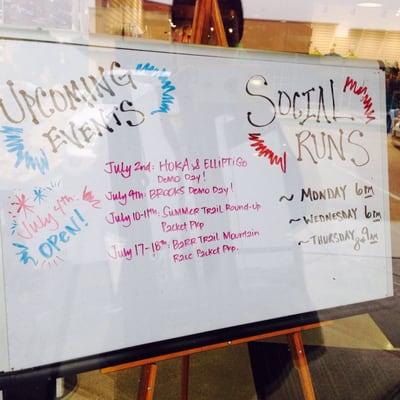 UPCOMING
EVENTS
July 4th:
OPEN!
July 2nd: HOKA & ELLIPTIGO
DEMO Day!
July 4th: BROOKS DEMO Day!
July 10-11th: SUMMER TRAIL ROUND-UP
Packet PkP
July 17-18th: BARR TRAIL MOUNTAIN
RACE Packet PkP.
SOCIAL
RUNS
~ MONDAY 6PM
~ WEDNESDAY 6PM
~ THURSDAY 9AM